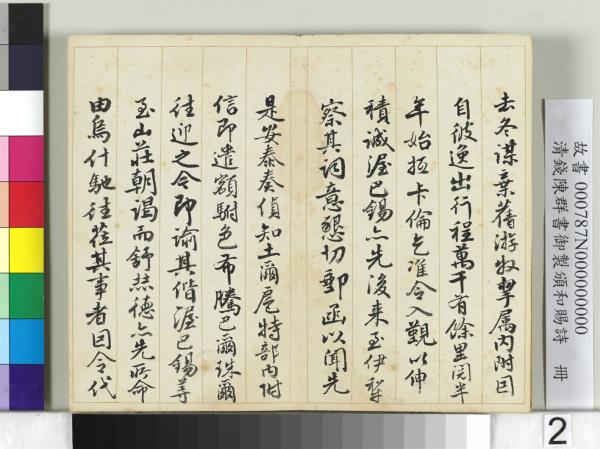 去冬謀棄舊游牧挈属內附因
自彼逸出行程萬千有餘里閲半
年始抵卡倫乞准令入覲以伸
積誠渥巴錫亦先後来至伊犁
察其詞意懇切郵函以聞先
是安泰奏偵知土爾扈特部內附
信即遣額駙色布騰巴爾珠爾
往迎之令即諭其偕渥巴錫等
至山莊朝謁而舒赫德亦先所命
由烏什馳往莅其事者因令代
故書 000787N000000000
清錢陳群書御製頒和賜詩 冊
2